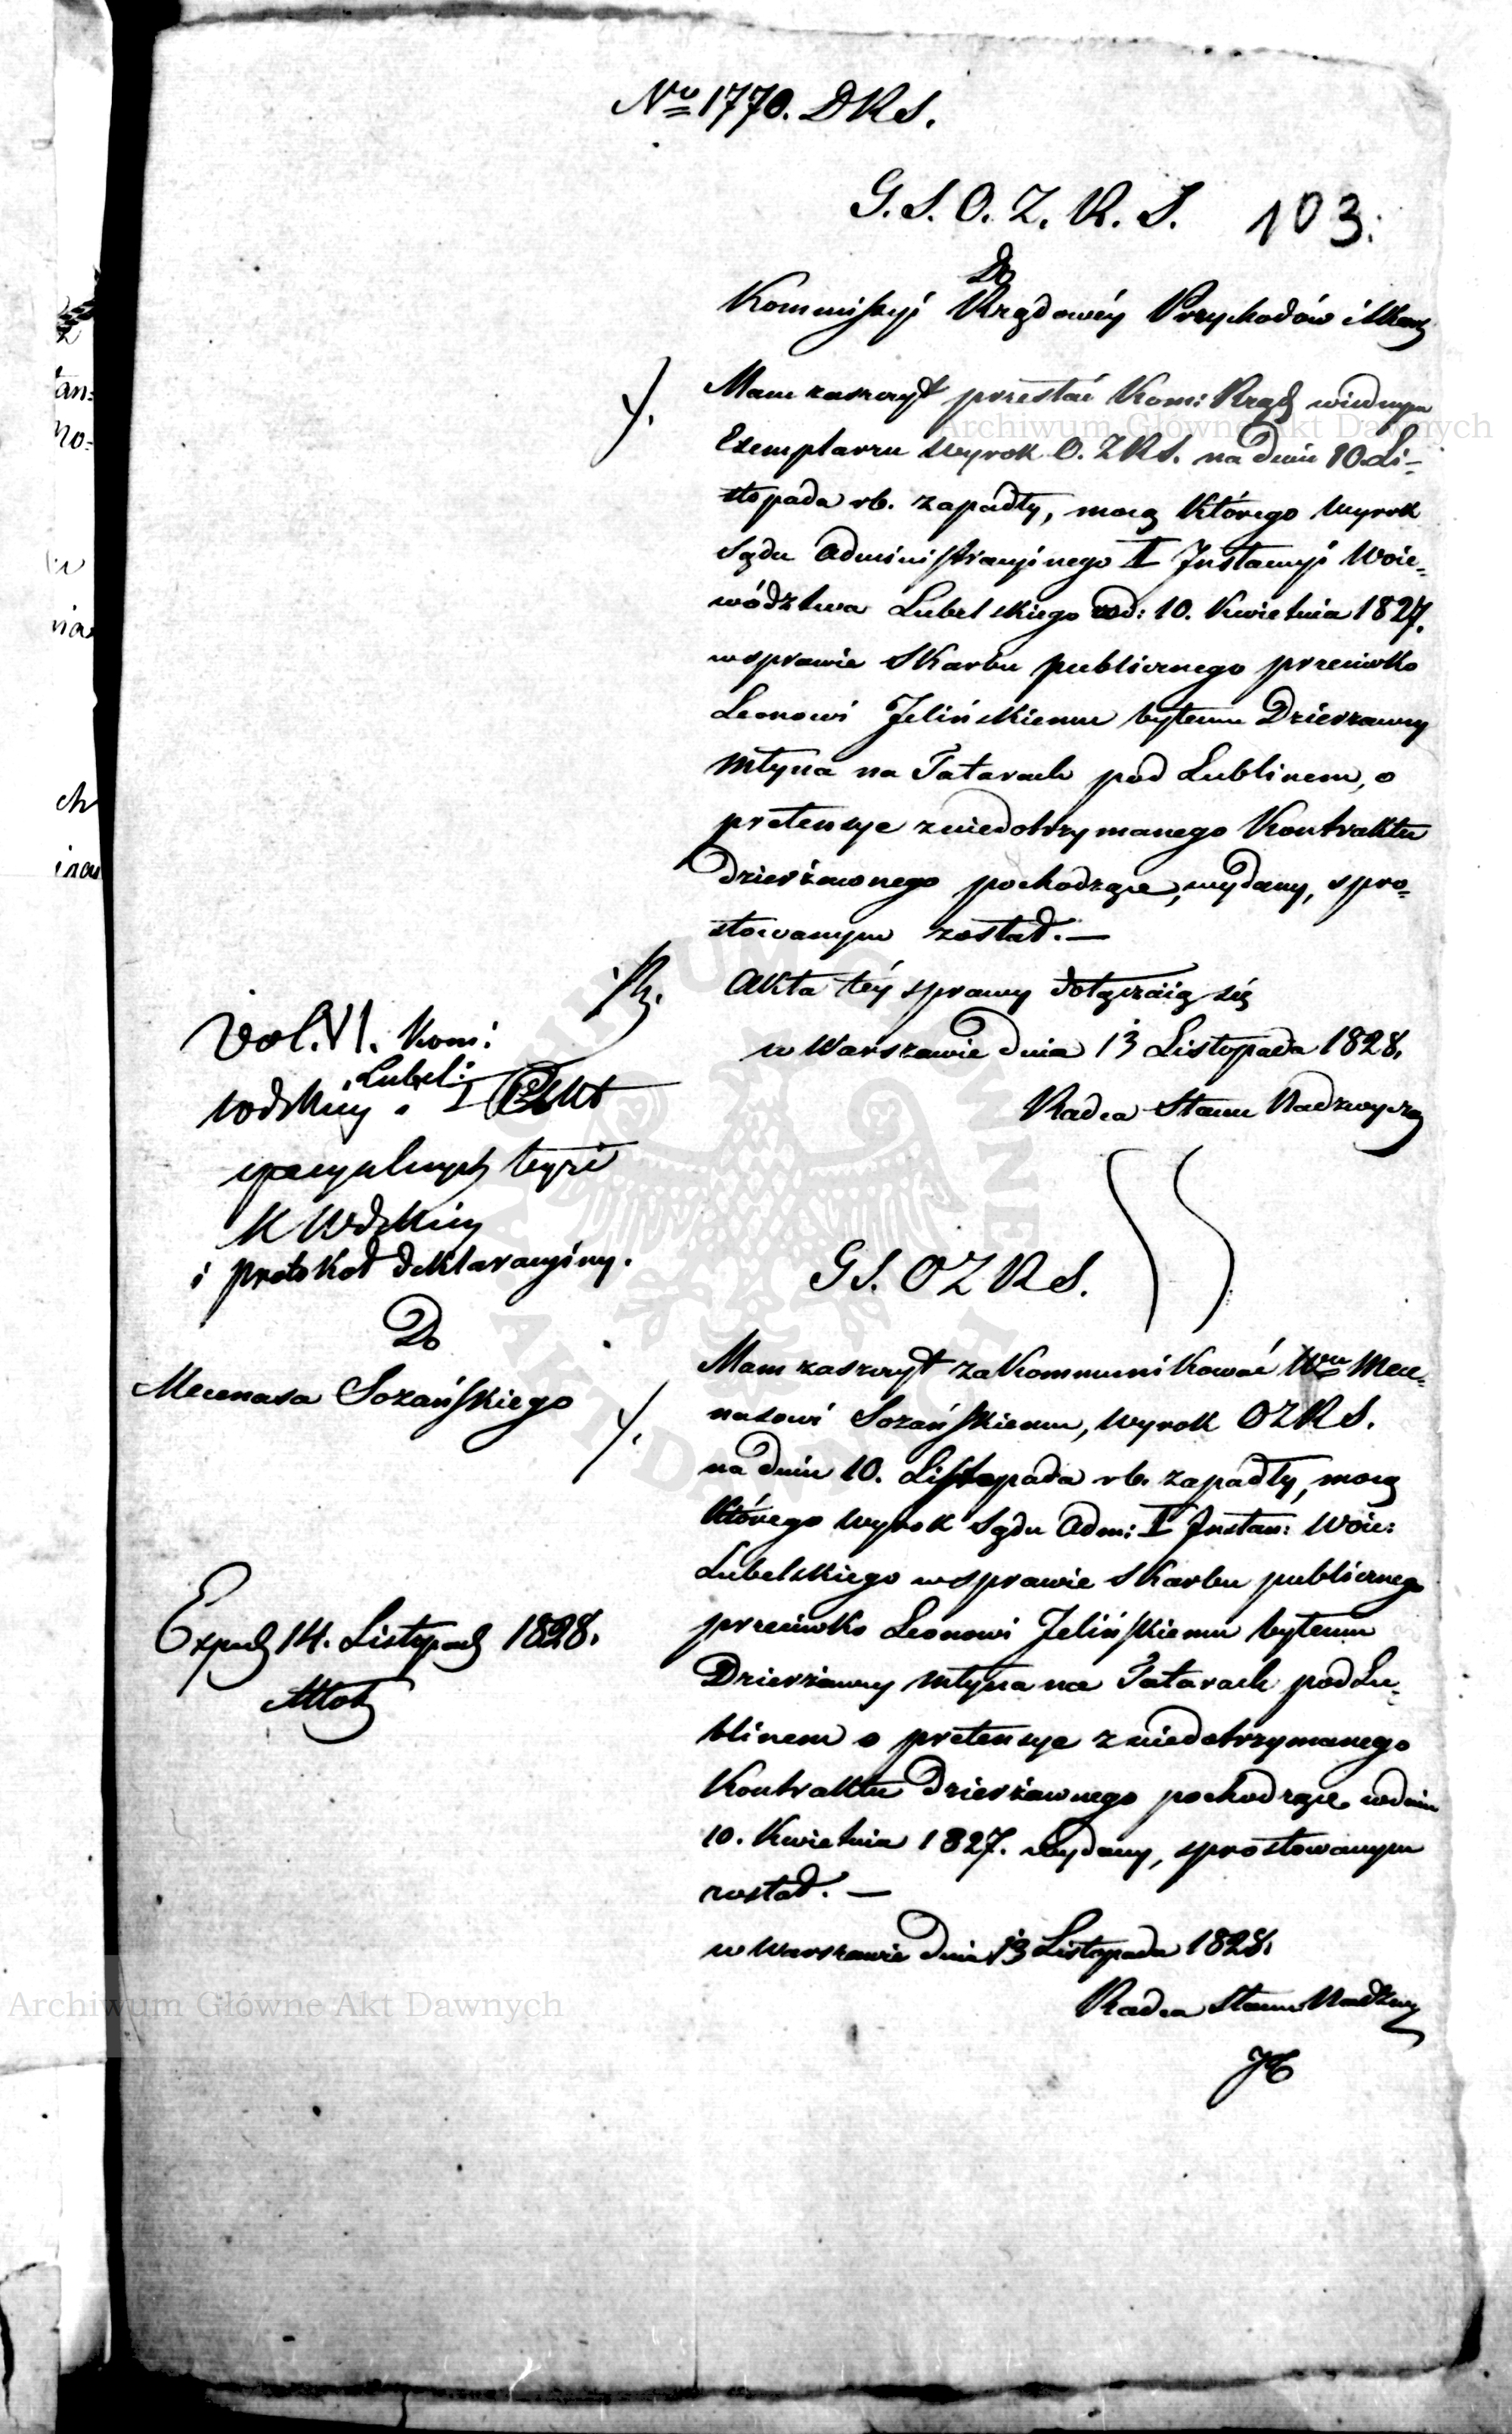 No 1770. DRS.
G. S. O. Z. R. S. 103.
Do
Kommissyi Rządowéy Przychodów i Skarb
Mam zaszczyt przesłać Kom: Rząd wiednym
Exemplarzu Wyrok O. Z R S. na dniu 10 Li-
stopada rb. zapadły, mocą którego Wyrok
Sądu Administracyinego I Instancyi Woie-
wództwa Lubelskiego od: 10. Kwietnia 1827.
w sprawie Skarbu publicznego przeciwko
Leonowi Jelińskiemu byłemu Dzierzawcy
Młyna na Tatarach pod Lublinem, o
pretensye z niedotrzymanego Kontraktu
dzierżawnego pochodzące, wydany, spro-
stowanym został. —
Akta téy sprawy dołączaią się
w Warszawie dnia 13 Listopada 1828.
Radca Stanu Nadzwycz
Vol. VI. Kom:
Lubel:
wodzkiey i I
specyalnych teyże
K Wdzkiey
i protokoł deklaracyiny.
G S. O Z R S.
Do
Mecenasa Sozańskiego
Mam zaszczyt zakommunikować Wmu Mece-
nasowi Sozańskiemu, Wyrok O Z R S.
na dniu 10. Listopada rb. zapadły, mocą
którego Wyrok Sądu Adm: I Instan: Woie:
Lubelskiego w sprawie Skarbu publicznego
przeciwko Leonowi Jelińskiemu byłemu
Dzierżawcy Młyna na Tatarach pod Lu-
blinem o pretensye z niedotrzymanego
Kontraktu Dzierżawnego pochodzące w dniu
10. Kwietnia 1827. wydany, sprostowanym
został. —
w Warszawie dnia 13 Listopada 1828.
Radca Stanu Nadzwy
Exped 14. Listopad 1828.
Archiwum Główne Akt Dawnych
Archiwum Główne Akt Dawnych